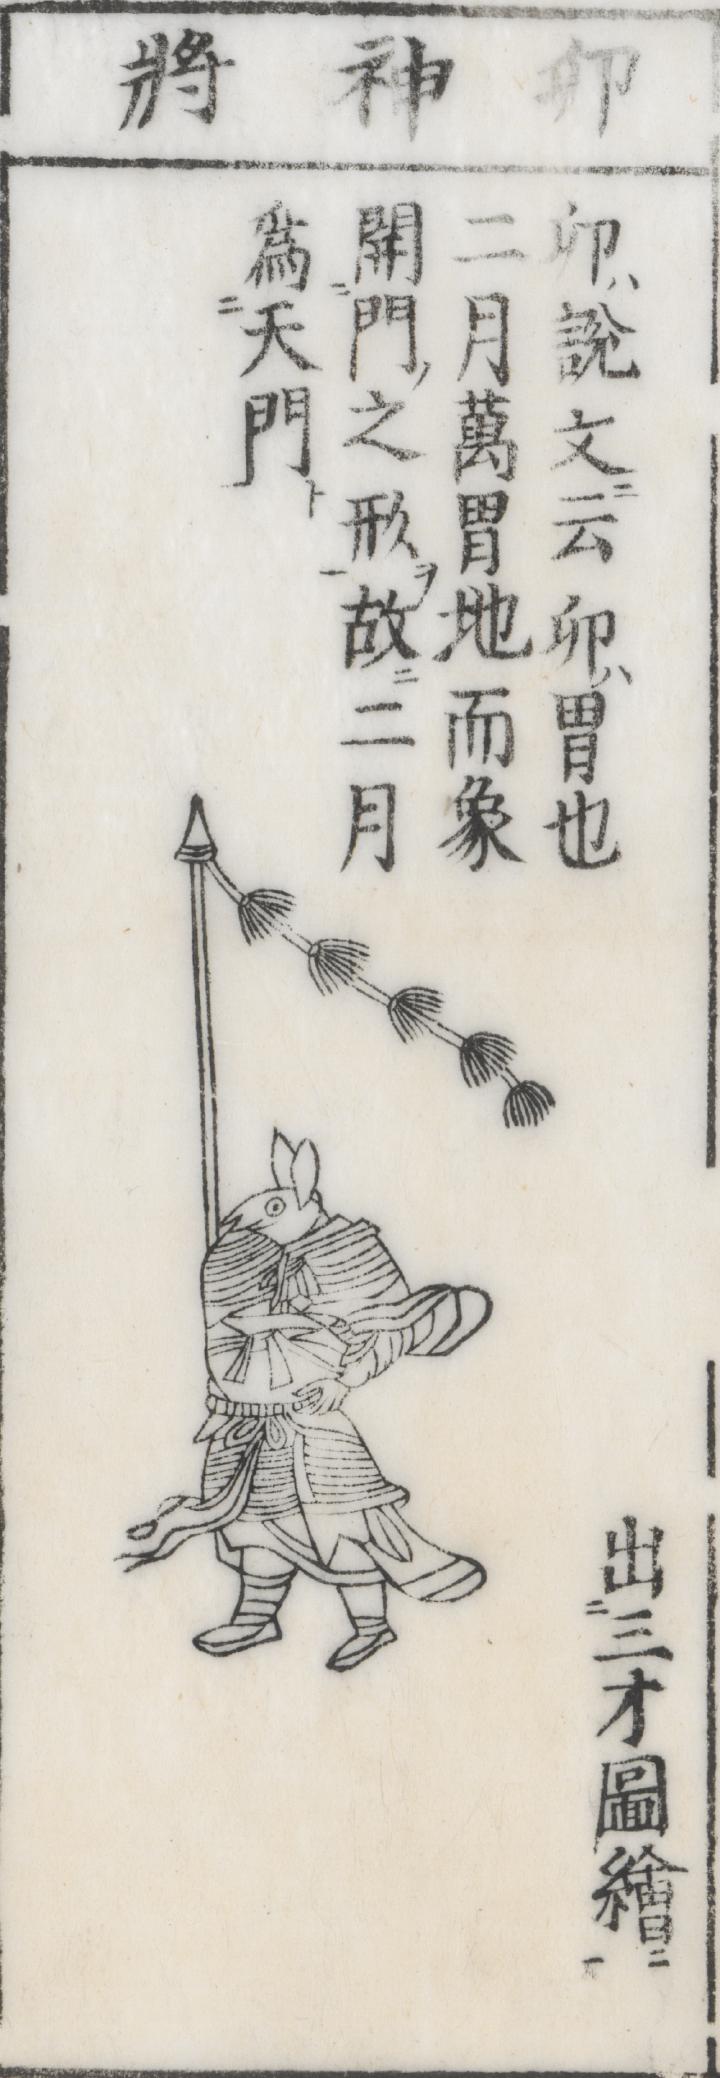 卯神將
卯ハ說文ニ云卯ハ冒也
二月萬冒地而象
開二門ノ之形一ヲ故ニ二月
爲二天門ト
出二三才圖繪一ニ